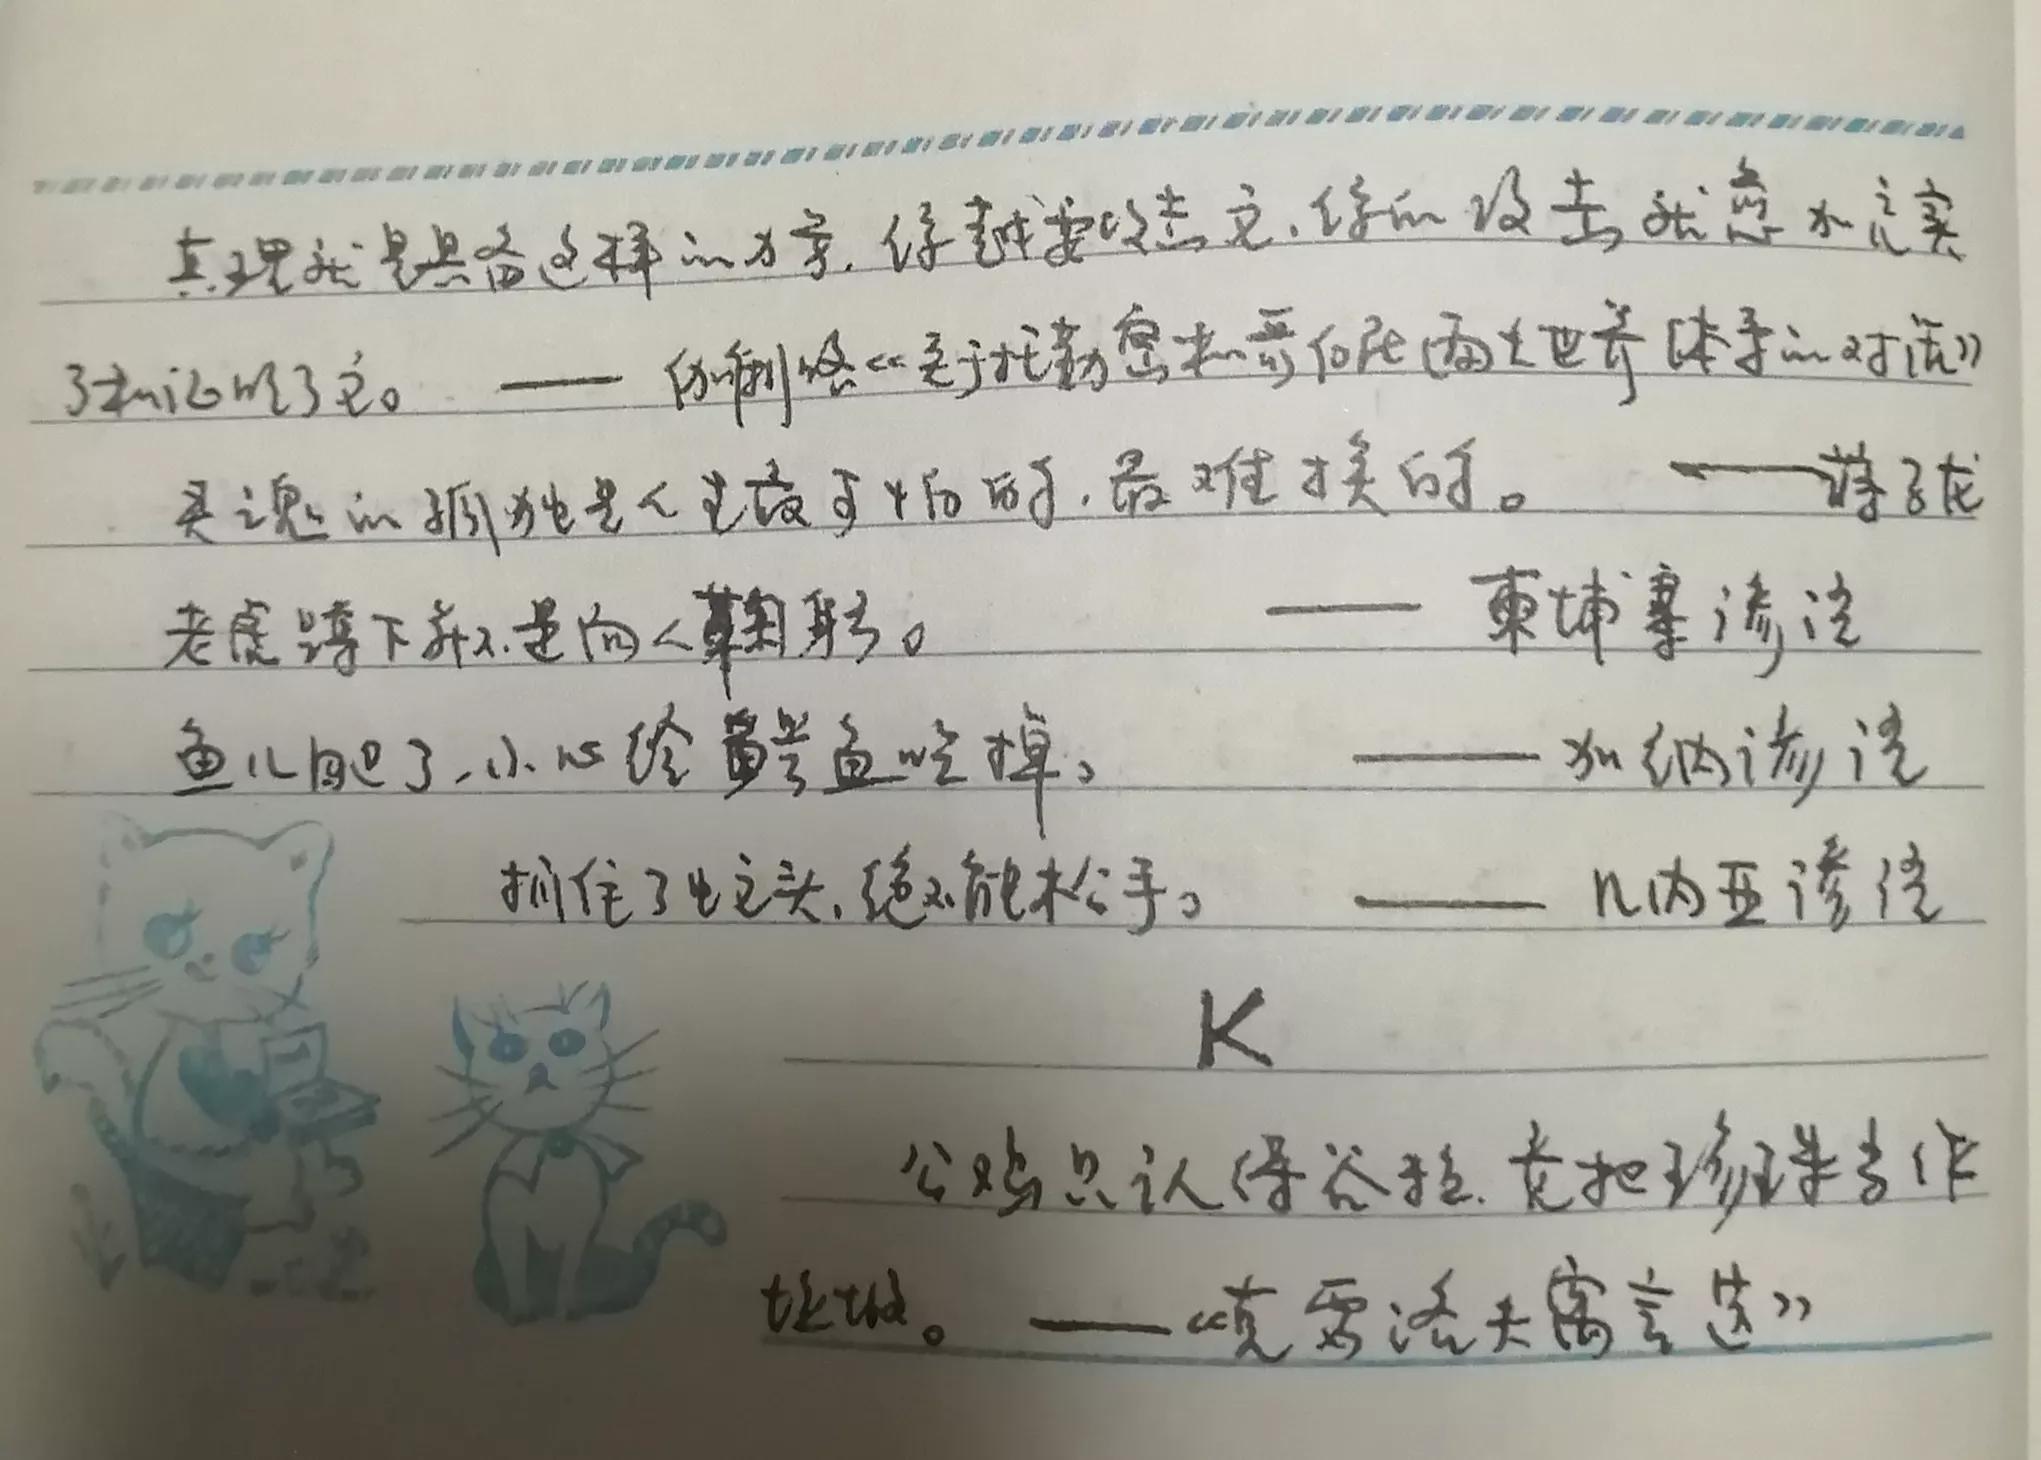 真理就是具备这样的力量,你越要攻击它,你的攻击就愈加充实
了和证明了它。 —— 伽利略《关于托勒密和哥白尼两大世界体系的对话》
灵魂的孤独是人生最可怕的,最难挨的。 ——蒋子龙
老虎蹲下并不是向人鞠躬。 —— 柬埔寨谚语
鱼儿肥了,小心给鳄鱼吃掉。 —— 加纳谚语
抓住了蛇头,绝不能松手。 —— 几内亚谚语
K
公鸡只认得谷粒,竟把珍珠当作
垃圾。 ——《克雷洛夫寓言选》